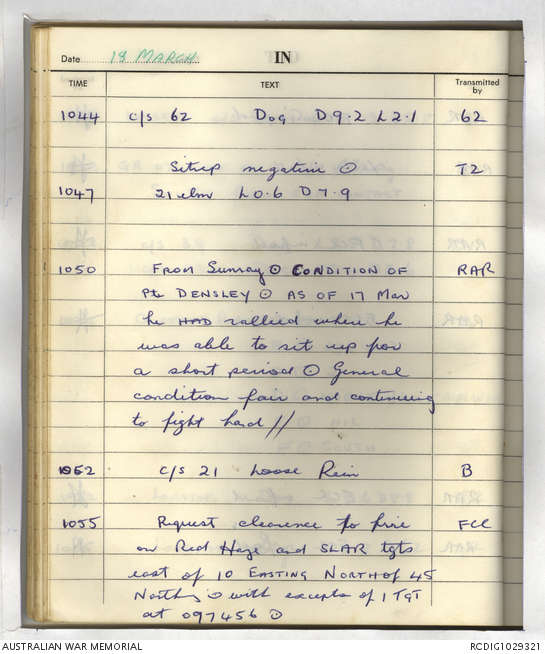 Date 18 MARCH IN
TIME TEXT Transmitted by
1044 C/S 62 Dog D9.2 L2.1 62
Sitrep negative ⊙ T2
1047 21 elm L0.6 D7.9
1050 FROM Sunray ⊙ CONDITION OF RAR
Pte DENSLEY ⊙ AS OF 17 Mar
he HAD rallied where he
was able to sit up for
a short period ⊙ General
condition fair and continuing
to fight hard //
1052 C/S 21 Loose Rein B
1055 Request clearence to fire FCC
on Red Haze and SLAR tgts
east of 10 EASTING NORTH of 45
Northing ⊙ with excepts of 1 TGT
at 097456 ⊙
AUSTRALIAN WAR MEMORIAL RCDIG1029321